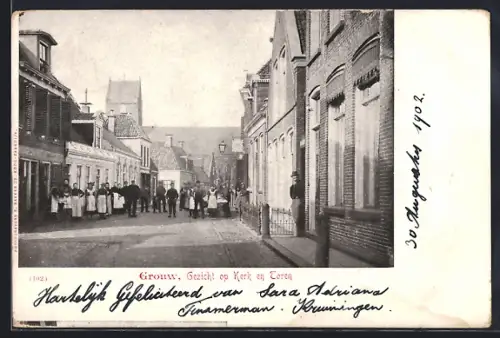 (102)
Grouw, Gezicht op Kerk en Toren
30 Augustus 1902.
Hartelijk Gefeliciteerd van Sara Adriana
Timmerman. Kruiningen.